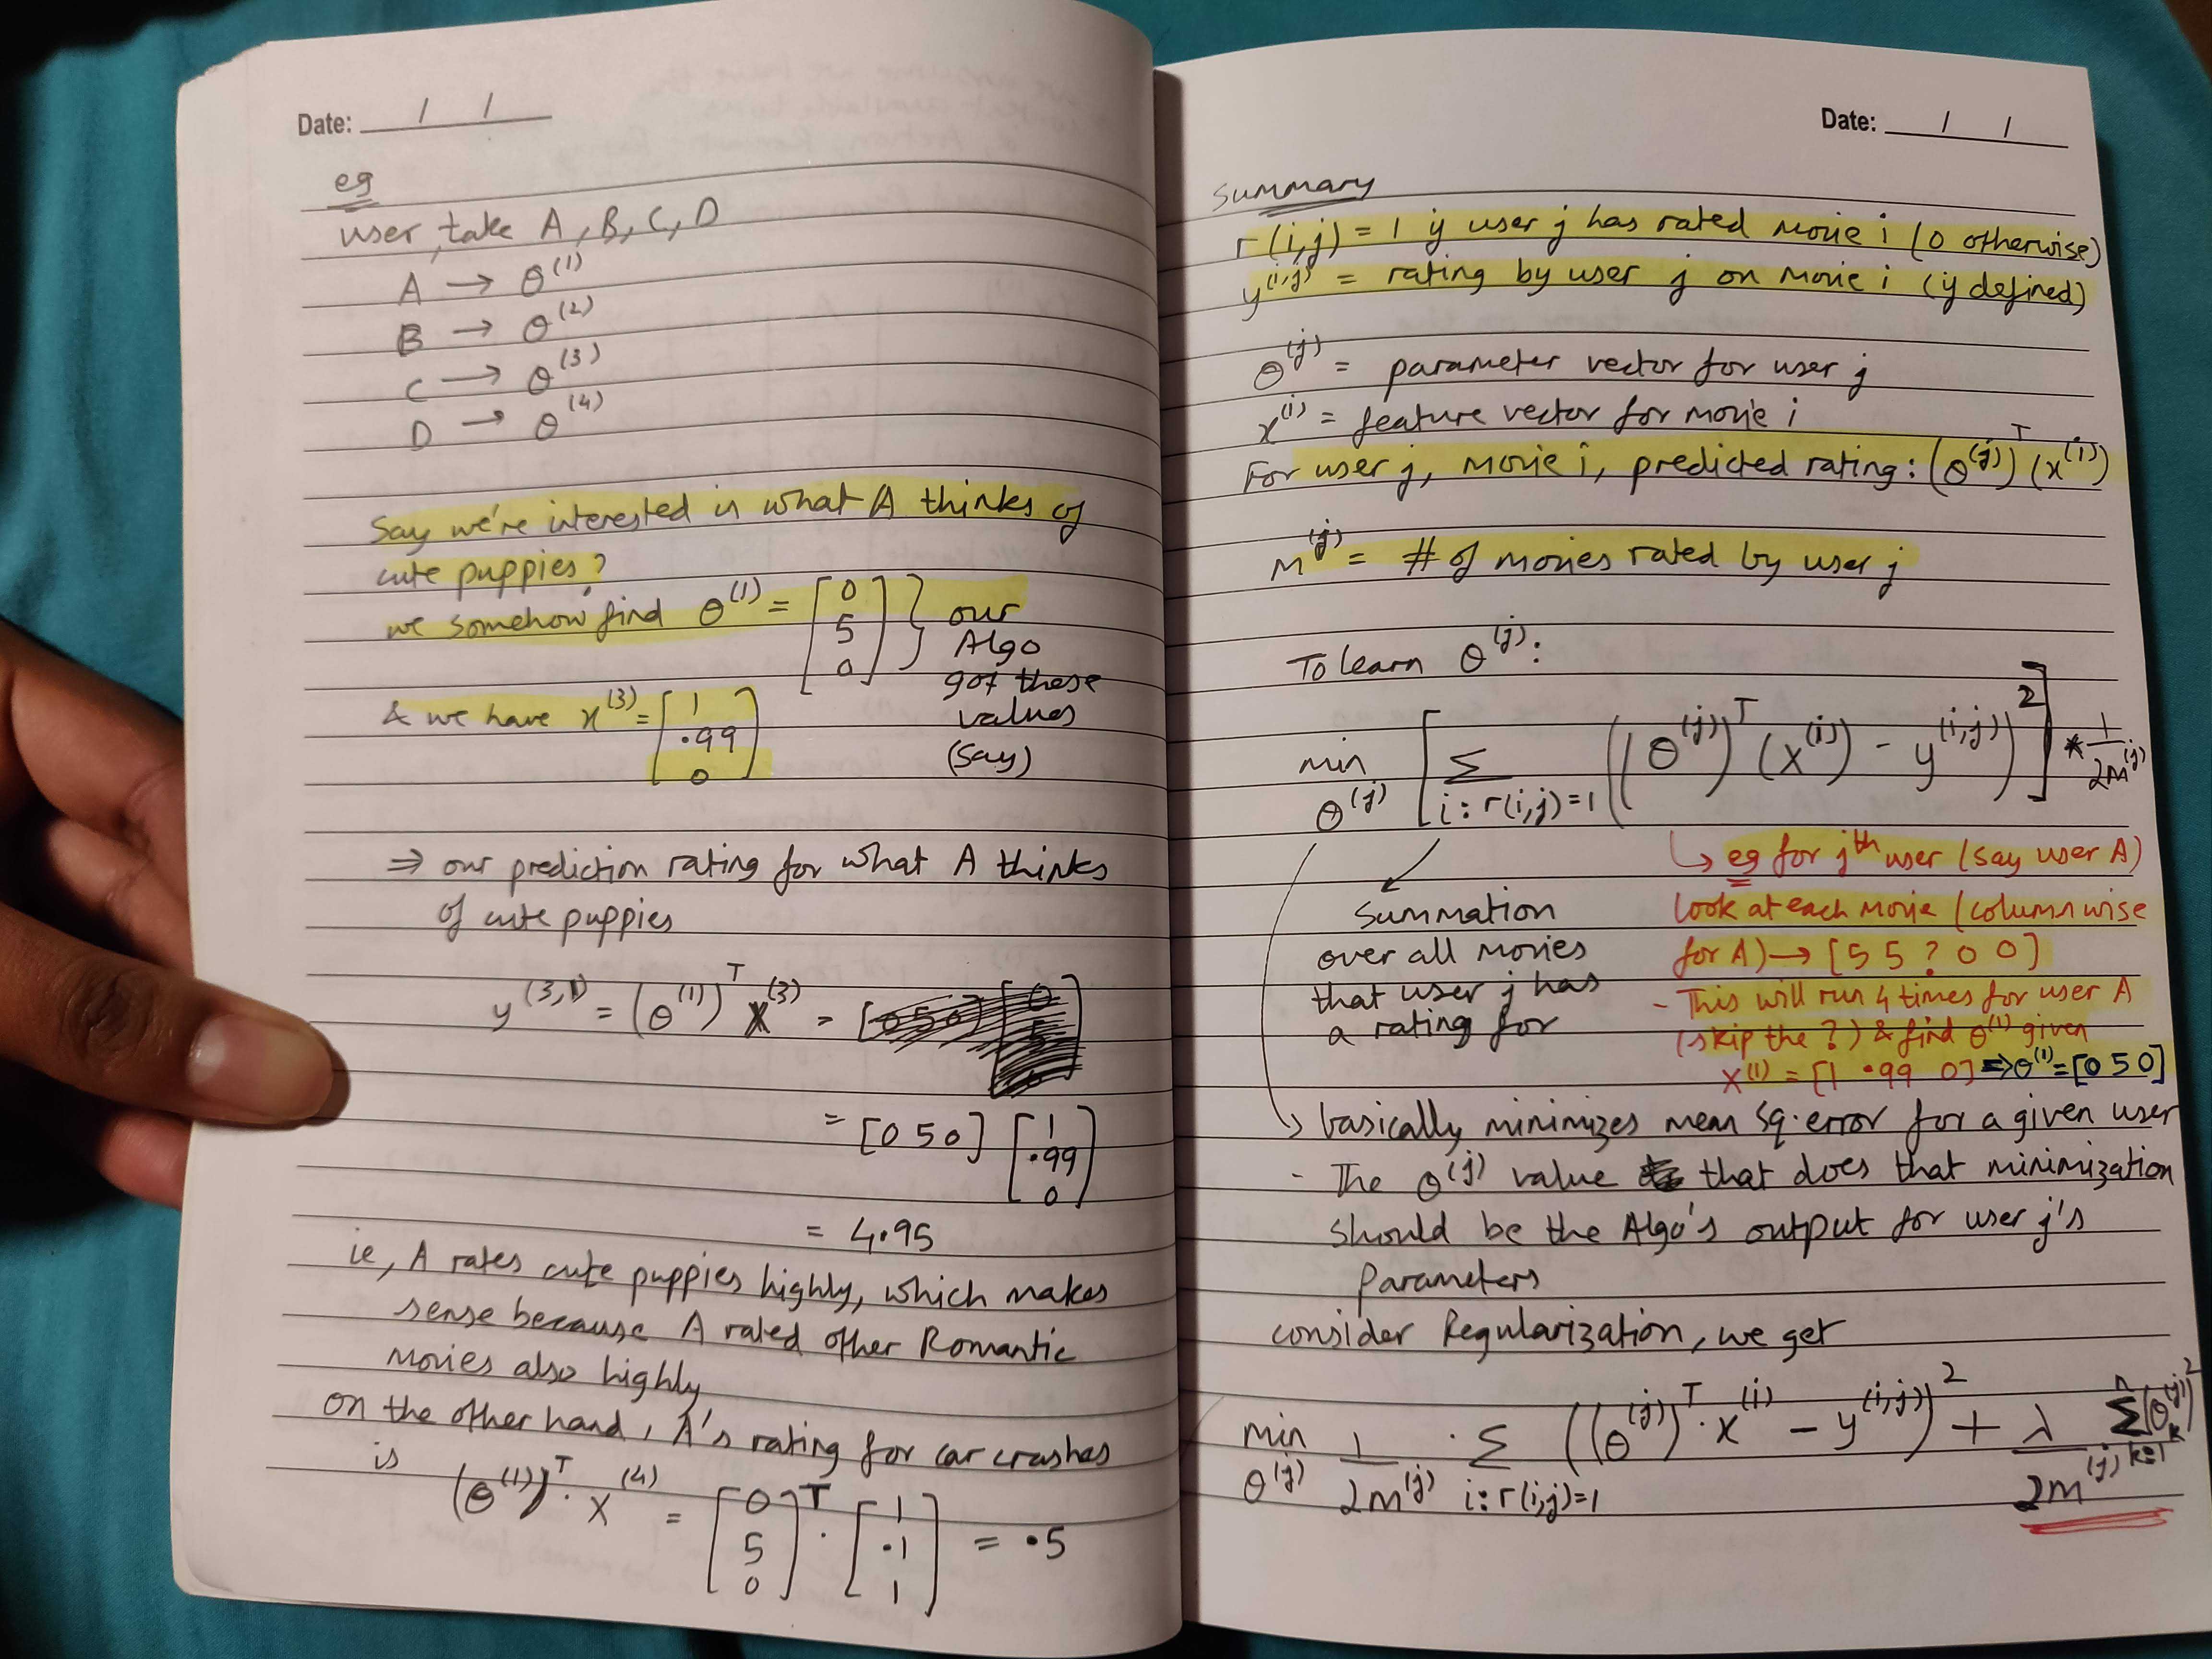 Date: / /
eg
user, take A, B, C, D
A → θ^(1)
B → θ^(2)
C → θ^(3)
D → θ^(4)
Say we're interested in what A thinks of
cute puppies?
we somehow find θ^(1) = [0 5 0] } our
Algo
got these
values
(say)
& we have x^(3) = [1 .99 0]
⇒ our prediction rating for what A thinks
of cute puppies
y^(3,1) = (θ^(1))^T x^(3) =
= [0 5 0] [1 .99 0]
= 4.95
ie, A rates cute puppies highly, which makes
sense because A rated other Romantic
movies also highly
on the other hand, A's rating for car crashes
is (θ^(1))^T . x^(4) = [0 5 0]^T . [1 .1 1] = .5
Date: / /
Summary
r(i,j) = 1 if user j has rated movie i (0 otherwise)
y^(i,j) = rating by user j on movie i (if defined)
θ^(j) = parameter vector for user j
x^(i) = feature vector for movie i
For user j, movie i, predicted rating: (θ^(j))^T (x^(i))
m^(j) = # of movies rated by user j
To learn θ^(j):
min θ^(j) [ Σ i:r(i,j)=1 ((θ^(j))^T (x^(i)) - y^(i,j))^2 ] * 1/2m^(j)
Summation
over all movies
that user j has
a rating for
↳ eg for j^th user (say user A)
look at each movie (column wise
for A) → [5 5 ? 0 0]
- This will run 4 times for user A
(skip the ?) & find θ^(1) given
x^(1) = [1 .99 0] ⇒ θ^(1) = [0 5 0]
↳ basically minimizes mean sq. error for a given user
- The θ^(j) value that does that minimization
should be the Algo's output for user j's
parameters
consider Regularization, we get
min θ^(j) 1/2m^(j) . Σ i:r(i,j)=1 ((θ^(j))^T . x^(i) - y^(i,j))^2 + λ/2m^(j) Σ k=1 n (θ_k^(j))^2